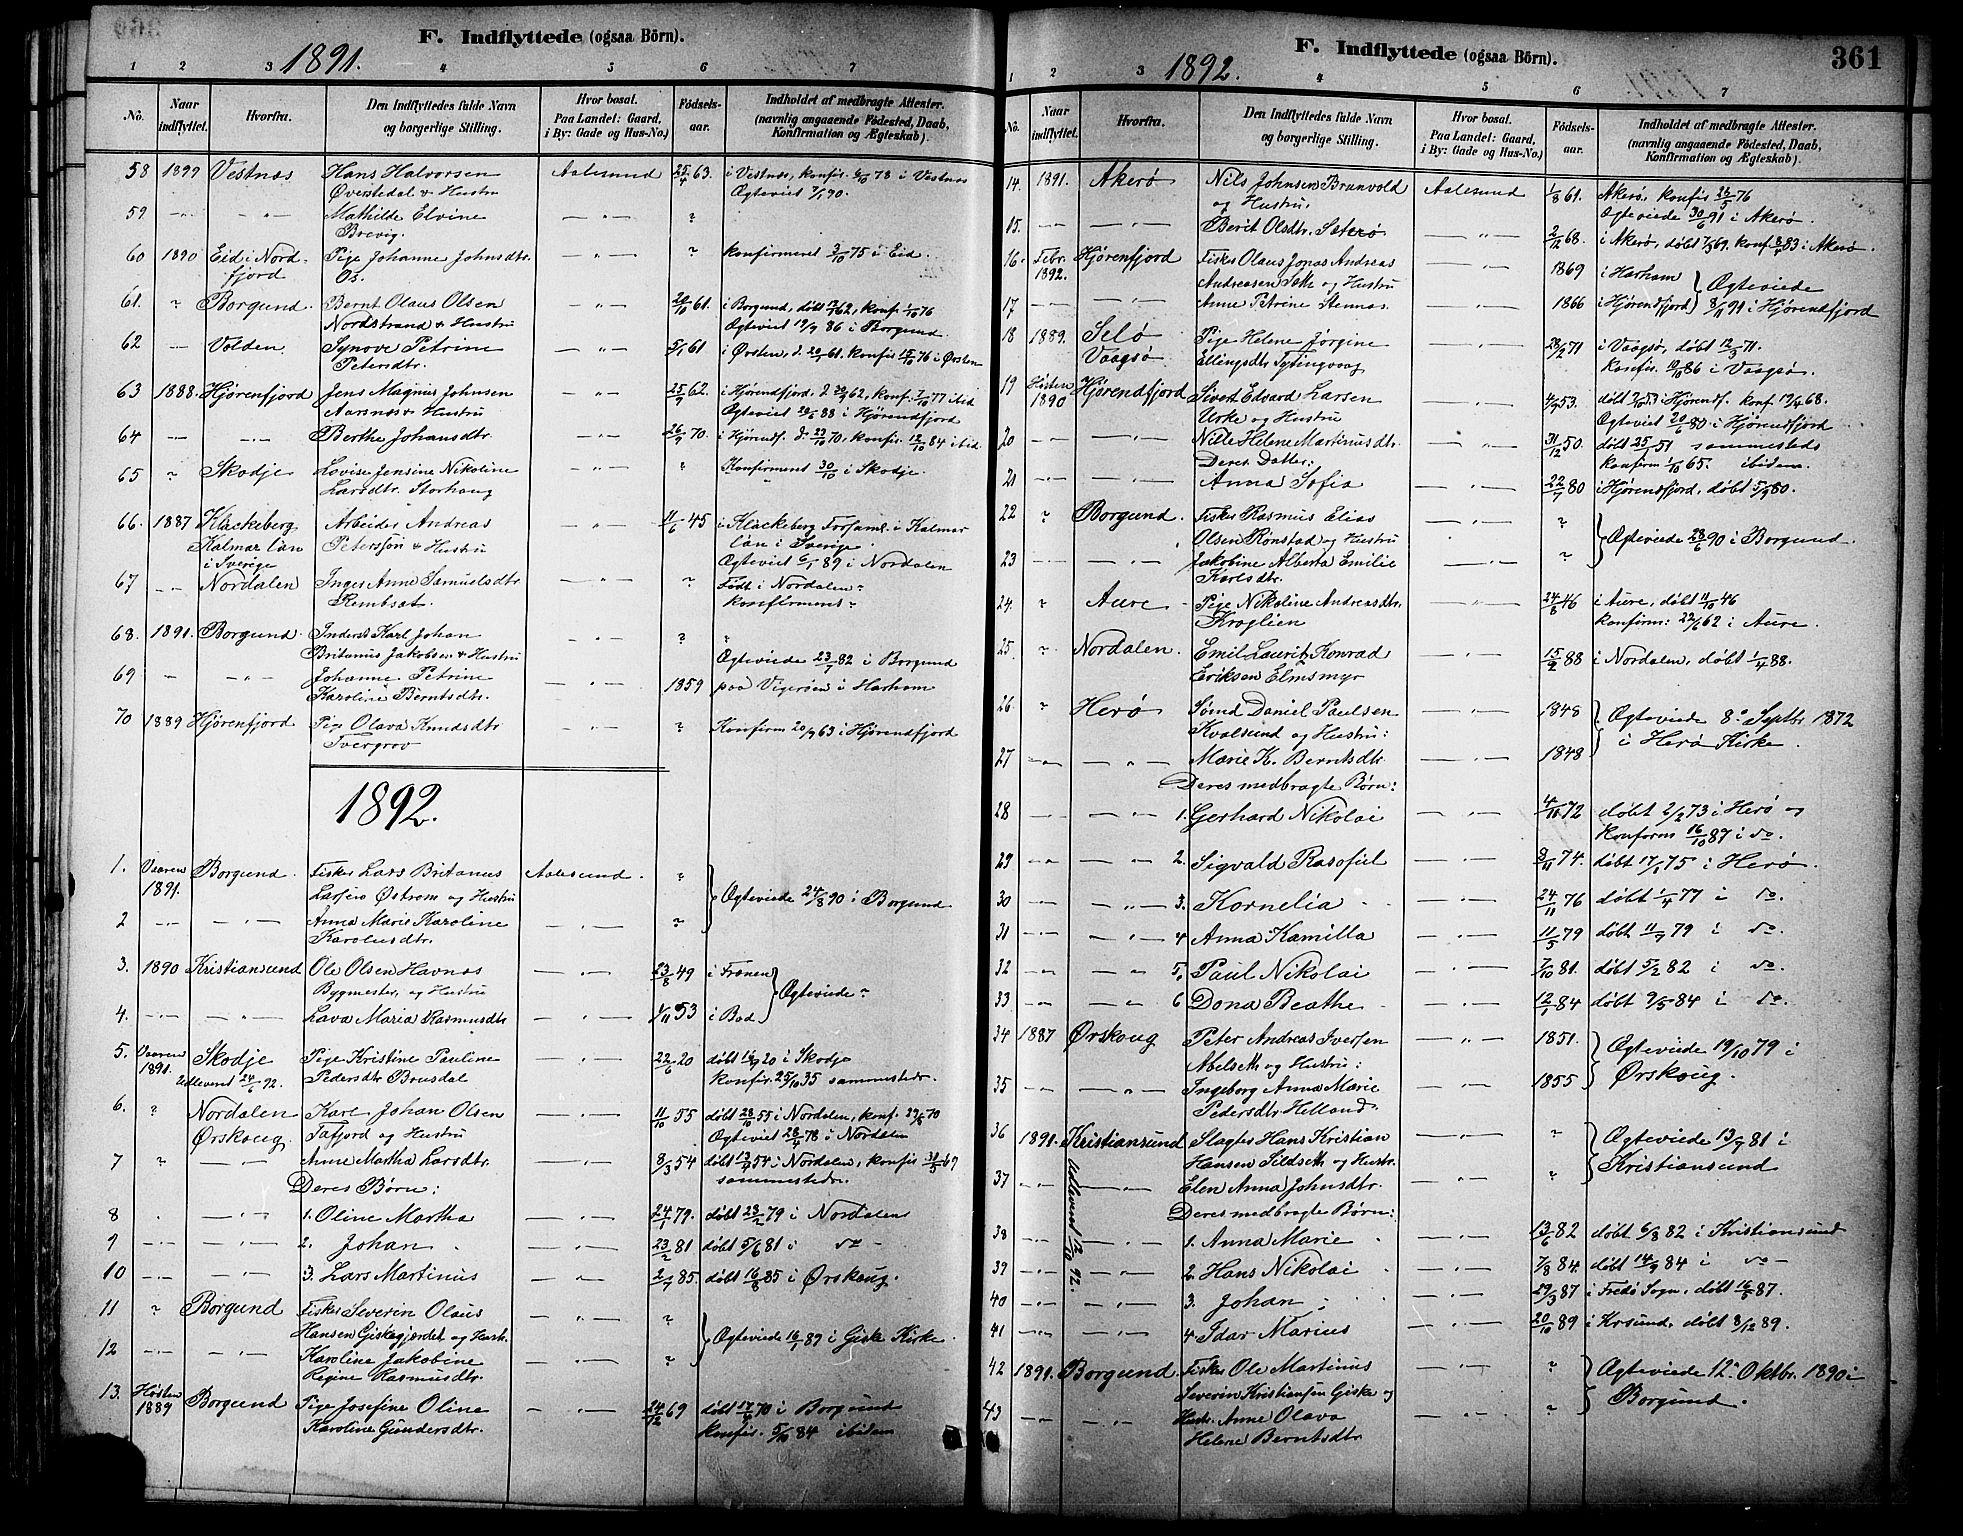 F. Indflyttede (ogsaa Börn).
1891.
1 2 3 4 5 6 7
No. Naar indflyttet. Hvorfra. Den Indflyttedes fulde Navn og borgerlige Stilling. Hvor bosat. Paa Landet: Gaard, i By: Gade og Hus-No.) Födsels-aar. Indholdet af medbragte Attester. (navnlig angaaende Födested, Daab, Konfirmation og Ægteskab).
58 Vestnæs Hans Halvorsen Aalesund 25/4 63. i Vestnæs, konfir. 6/10 78 i Vestnæs
Øverstedal & Hustru Ægteviet
59 —"— —"— Mathilde Elvine —"— ?
Brevig.
60 1890 Eid i Nord- Pige Johanne Johnsdtr —"— ? konfirmeret 3/10 75 i Eid.
fjord Os.
61. " Borgund. Bernt Olaus Olsen —"— 20/10 61. i Borgund, døbt konf. 1/10 76
Nordstrand & Hustru Ægteviet 19/7 86 i Borgund.
62 — Volden. Synove Petrine —"— 5/1 61 i Ørsten, d. 20/1 61. konfir. 15/10 76 i Ørsten
Petersdtr.
63 1888. Hjørenfjord Jens Magnus Johnsen —"— 25/7 62. i Hjørendfjord. konfir. 7/10 77 ibid
Aarsnæs & Hustru Ægteviet 88 i Hjørendfjord
64 —"— —"— Berthe Johansdtr. —"— 26/9 70. i Hjørendf. d. 23/10 70, konfir. 12/10 84 ibid.
65 " Skodje Lovise Jensine Nikoline —"— ? Konfirmeret 30/10 i Skodje.
Larsdtr. Storhaug
66. 1887 Klackeberg Arbeider Andreas —"— 11/6 45 i Klackeberg Forsaml. i Kalmar
Kalmar län Petersson & Hustru län i Sverige.
i Sverige Ægteviet 6/1 89 i Nordalen
67 —"— Nordalen Inger Anne Samuelsdtr —"— ? Født i Nordalen
Rembsæt. konfirmeret "
68. 1891. Borgund. Inderst Karl Johan —"— ? "
Britanus Jakobsen & Hustru Ægteviede 23/7 82 i Borgund
69 — —"— Johanne Petrine —"— 1859 paa Vigerøen i Harham
Karoline Berntsdtr.
70 1889 Hjørenfjord Pige Olava Knudsdtr —"— ? Konfirm 20/9 63 i Hjørendfjord
Tvergrov
1892.
1. Vaaren Borgund. Fisker Lars Britanus Aalesund. ?
1891. Larsen Østrem og Hustru Ægteviede 24/8 90 i Borgund
2 —"— —"— Anna Marie Karoline —"— ?
Karolusdtr.
3. 1890 Kristiansund Ole Olsen Havnæs —"— 23/8 49 i Frænen
Bygmester, og Hustru Ægteviede "
4. —"— —"— Lava Maria Rasmusdtr —"— 1/11 53 i Bod
5. Vaaren Skodje Pige Kristine Pauline —"— 22/6 20 døbt 16/7 20 i Skodje
1891. Udleveret 24/6 92. Pedersdtr Brusdal konfir. 25/10 35 sammesteds.
6. " Nordalen Karl Johan Olsen —"— 11/10 55 døbt 28/10 55 i Nordalen, konf. 29/5 70
Ørskoug Tafjord og Hustru Ægteviet 28/4 78 i Nordalen
7 " —"— Anne Martha Larsdtr. —"— 8/3 54 døbt 13/4 54 i Nordalen, konfir
Deres Børn: sammesteds.
8 " —"— 1. Oline Martha —"— 24/1 79. døbt 23/2 79 i Nordalen
9 —"— —"— 2. Johan —"— 23/2 81 døbt 5/6 81 i do
10 —"— —"— 3. Lars Martinus —"— 2/7 85. døbt 16/8 85 i Ørskoug.
11 " Borgund Fisker Severin Olaus —"— ?
Hansen Giskegjerdet og Hustr. Ægteviede 16/1 89 i Giske Kirke.
12 —"— —"— Karoline Jakobine —"— ?
Regine Rasmusdtr.
13. Høsten Borgund Pige Josefine Oline —"— 24/12 69 døbt 17/4 70 i Borgund
1889 Karoline Gundersdtr. konfir. 5/10 84 ibidem
F. Indflyttede (ogsaa Börn).
1892.
361
1 2 3 4 5 6 7
No. Naar indflyttet. Hvorfra. Den Indflyttedes fulde Navn og borgerlige Stilling. Hvor bosat. Paa Landet: Gaard, i By: Gade og Hus-No.) Födsels-aar. Indholdet af medbragte Attester. (navnlig angaaende Födested, Daab, Konfirmation og Ægteskab).
14. 1891. Akerø Nils Johnsen Brunvold Aalesund 1/8 61. Akerø, konfir 26/5 76
og Hustru, Ægteviede 30/6 91 i Akerø.
15. —"— —"— Berit Olsdtr. Sæterø —"— 2/12 68. i Akerø, døbt konf. 83 i Akerø.
16. Febr. Hjørenfjord Fisker Olaus Jonas Andreas —"— 1869 i Harham
1892. Andreasen Sæth og Hustru Ægteviede
17 —"— —"— Anne Petrine Stennæs. —"— 1866 i Hjørendfjord 8/11 91 i Hjørendfjord
18 1889. Selø Pige Helene Jørgine —"— 28/2 71 i Vaagsø, døbt 12/3 71.
Vaagsø. Ellingsdtr Tytingvaag Konfir. 10/10 86 i Vaagsø.
19 Høsten Hjørendfjord Sivert Edvard Larsen —"— 4/9 53. døbt 2/10 53 i Hjørendf. konf. 19/4 68.
1890 Urke og Hustru Ægteviet 20/6 80 i Hjørendfjord
20 —"— —"— Nille Helene Martinusdtr. —"— 31/12 50. døbt 25/1 51 sammesteds
Deres Datter: konfirm 1/10 65. ibidem.
21 —"— —"— Anna Sofia —"— 22/7 80 i Hjørendfjord, døbt 5/9 80.
22 " Borgund. Fisker Rasmus Elias —"— ?
Olsen Rønstad og Hustru Ægteviede 23/6 90 i Borgund.
23 —"— —"— Jakobine Alberta Emilie —"— ?
Karlsdtr.
24. " Aure Pige Nikoline Andreasdtr. —"— 24/8 46 i Aure, døbt 11/10 46
Kroglien konfirm: 22/6 62 i Aure.
25. " Nordalen. Emil Laurits Konrad —"— 15/2 88 i Nordalen, døbt 1/4 88.
Eriksen Elmsmyr
26. " Herø Smed Daniel Paulsen —"— 1848 Ægteviede 8de Septbr. 1872
Kvalsund og Hustru: i Herø Kirke.
27 —"— —"— Marie K. Berntsdtr. —"— 1848
Deres medbragte Børn:
28 —"— —"— 1. Gerhard Nikolai —"— 4/11 72 døbt 2/2 73 i Herø og
Konfirm 16/10 87 i do.
29 —"— — 2. Sigvald Rasofiel —"— 8/11 74. døbt 17/1 75 i Herø.
30 —"— —"— 3. Kornelia —"— 24/11 76 døbt 1/4 77 i do.
31 —"— —"— 4 Anna Kamilla —"— 11/5 79 døbt 11/7 79 i do.
32 —"— —"— 5. Paul Nikolai —"— 7/10 81. døbt 5/2 82 i do.
33 —"— —"— 6 Dona Beathe —"— 12/1 84 døbt 9/5 84 i do.
34 1887 Ørskoug Peter Andreas Iversen —"— 1851. Ægteviede 19/10 79 i
Abelseth og Hustru: Ørskoug.
35 —"— —"— Ingeborg Anna Marie —"— 1855
Pedersdtr Helland.
36 1891. Kristiansund Slagter Hans Kristian —"— ? Ægteviede 13/7 81 i
Hansen Sildseth og Hustr. Kristiansund
37 —"— —"— Elen Anna Johnsdtr. —"— ?
Udleveret 12/10 92.
Deres medbragte Børn:
38 —"— —"— 1. Anna Marie —"— 13/6 82 døbt 6/8 82 i Kristiansund
39 —"— —"— 2. Hans Nikolai —"— 7/8 84. døbt 14/9 84 i do
40 —"— —"— 3. Johan —"— 29/3 87 i Fredø Sogn. døbt 16/5 87.
41 —"— —"— 4 Idar Marius —"— 20/10 89 i Krsund. døbt 8/12 89.
42 1891. Borgund Fisker Ole Martinus —"— ? Ægteviede 12te Oktbr. 1890 i
Severin Kristiansen Giske og Borgund.
43 —"— —"— Hustr. Anne Olava —"— ?
Helene Berntsdtr